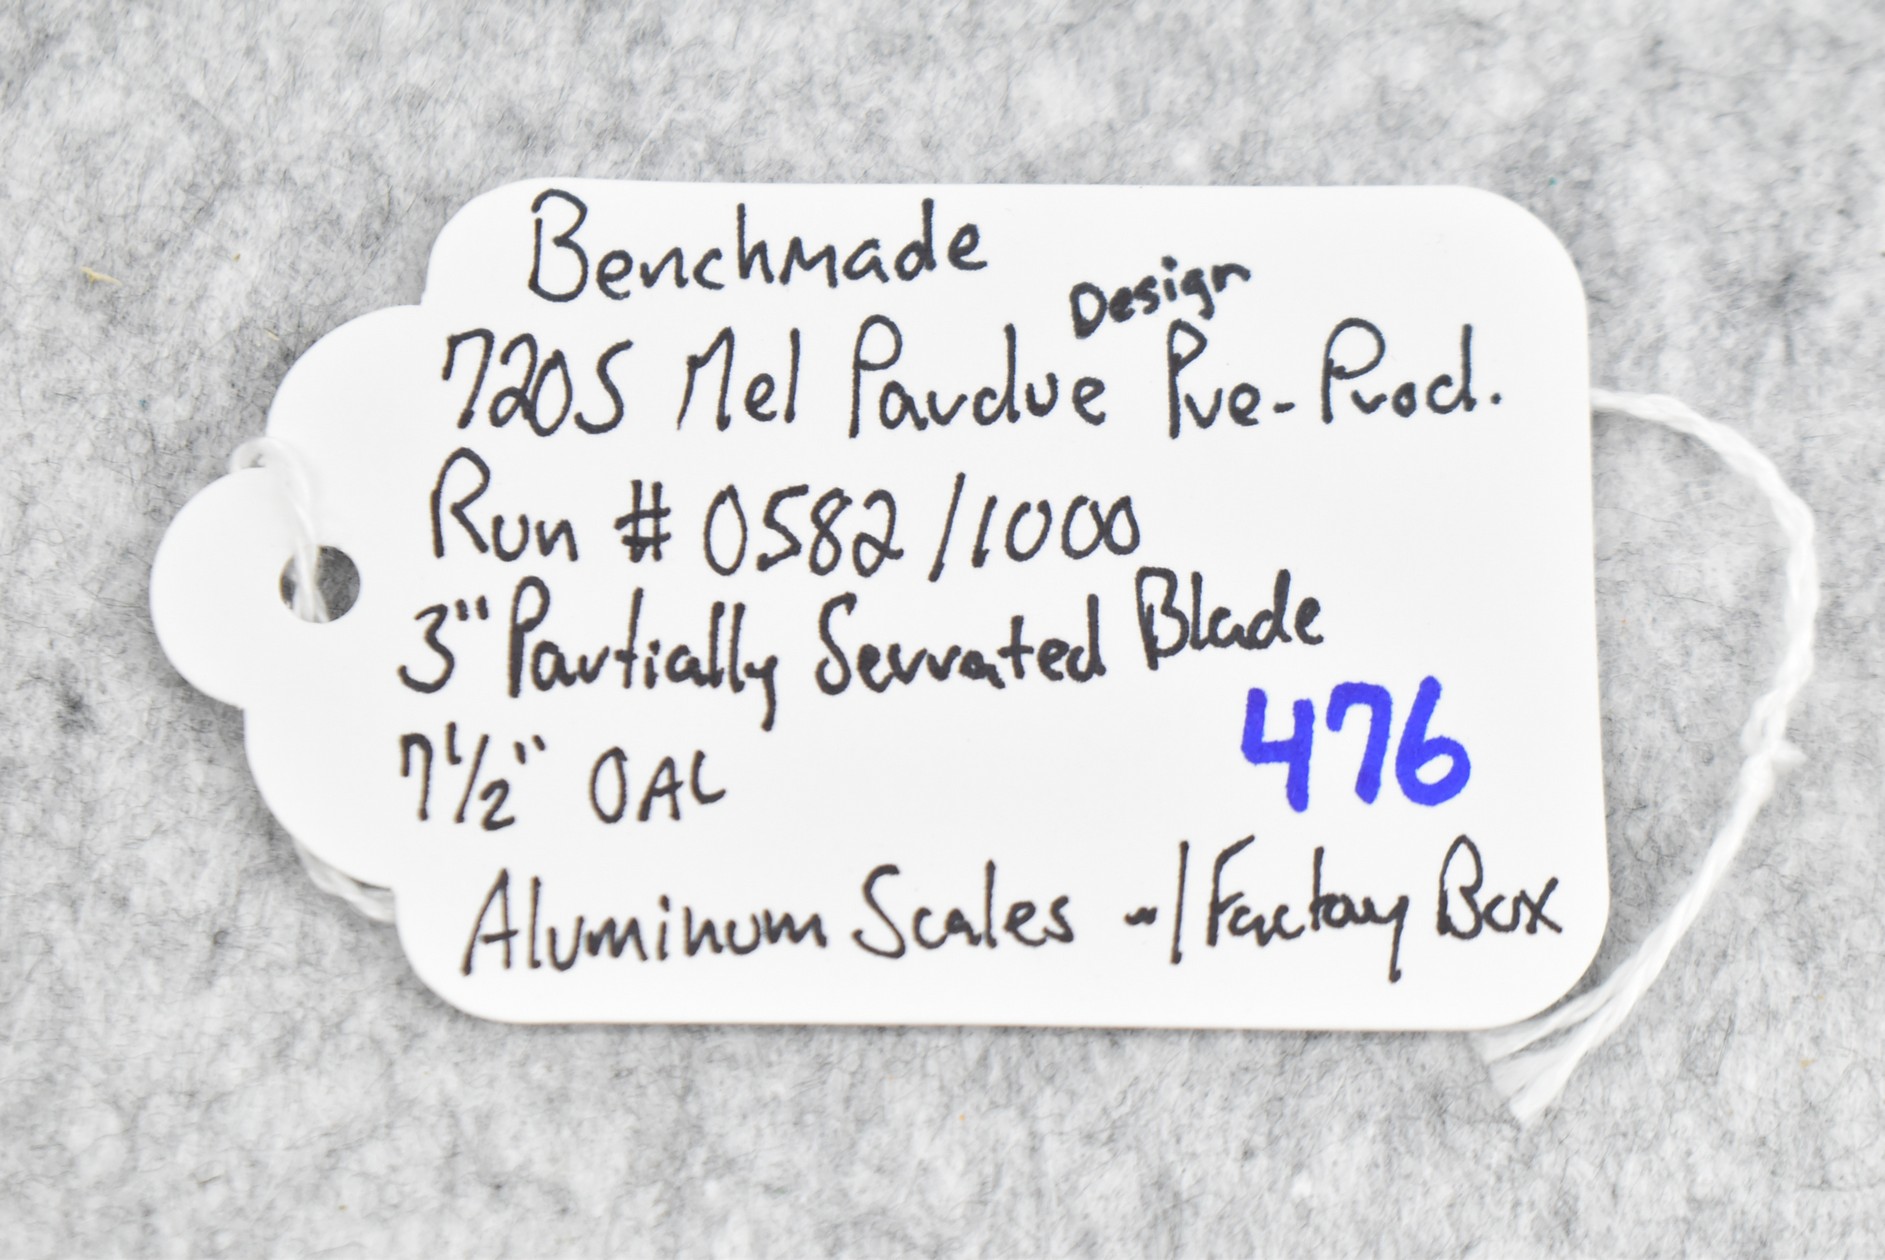 Benchmade
720S Mel Pardue Design Pre-Prod.
Run # 0582/1000
3" Partially Serrated Blade
7 1/2" OAL
476
Aluminum Scales w/ Factory Box